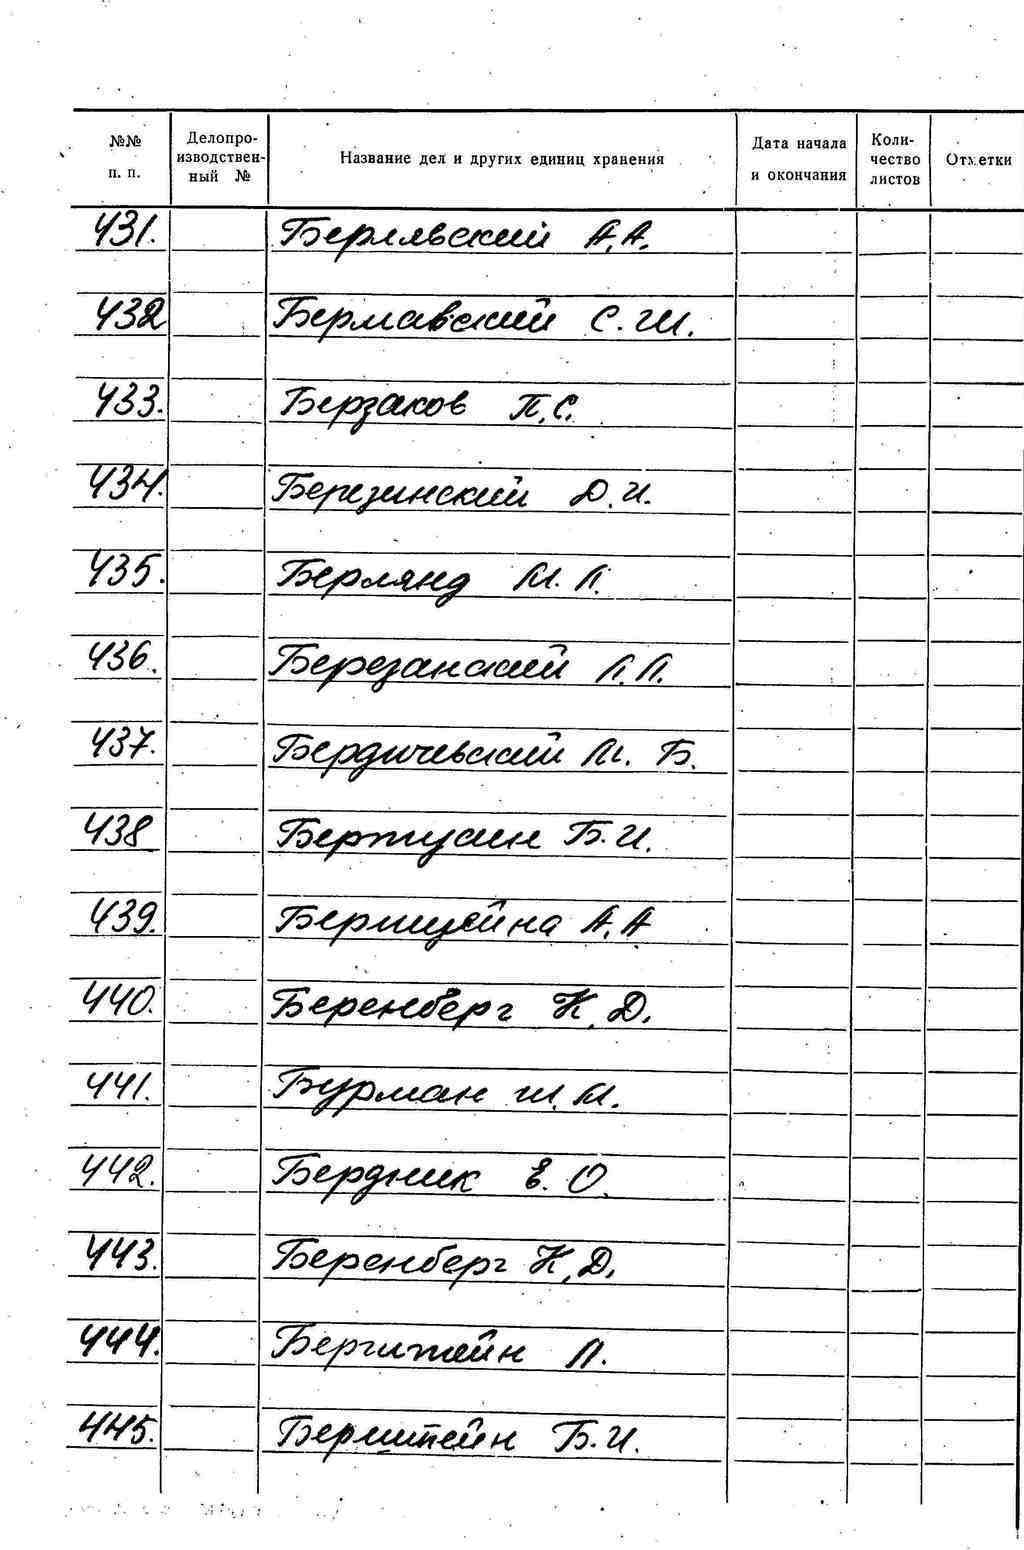 №№ п. п. Делопроизводственный № Название дел и других единиц хранения Дата начала и окончания Количество листов Отметки
431. Берлявский А.А.
432 Бермавский С.Ш.
433. Берзаков П.С.
434. Березинский Д.И.
435. Берлянд М.Л.
436. Березанский Л.Л.
437. Бердичевский М. Б.
438 Б.И.
439. А.А
440. Беренберг К.Д.
441. Бурман Ш.М.
442. Бердник Е.О.
443. Беренберг К.Д.
444. Бергштейн Л.
445. Берштейн Б.И.